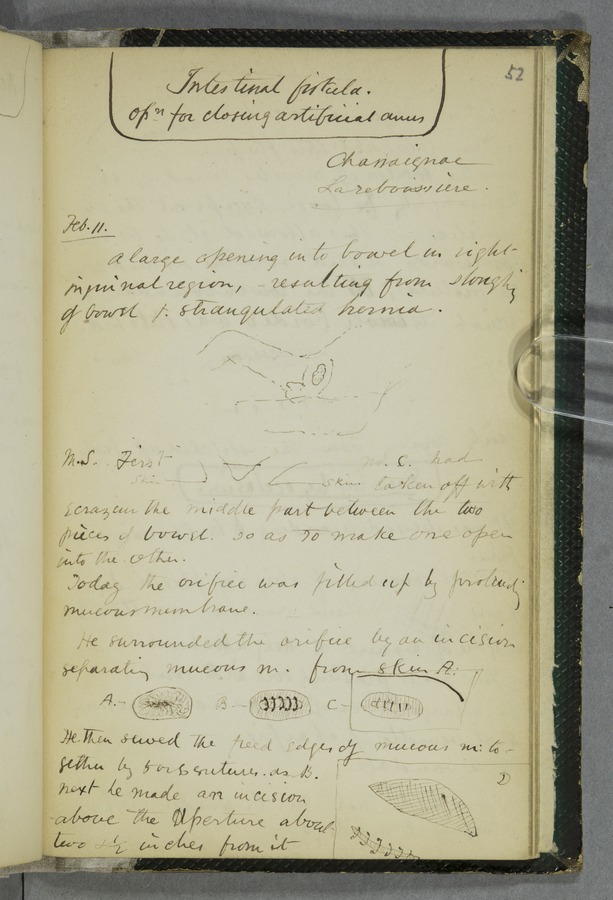 52
Intestinal fistula.
opn for closing artificial anus
Chassaignac
Lareboissiere.
Feb. 11.
A large opening into bowel in right
inguinal region, - resulting from sloughing
of bowel f. strangulated hernia.
M.S. First M. C. had
Skin skin taken off with
Ecraseur the middle part between the two
pieces of bowel. so as to make one open
into the other.
Today the orifice was filled up by protruding
mucous membrane.
He surrounded the orifice by an incision
separating mucous m. from skin A.
A. B C
He then sewed the freed edges of mucous m. to-
gether by 5 or 6 sutures. as B.
next he made an incision D
above the aperture about
two 1/2 inches from it